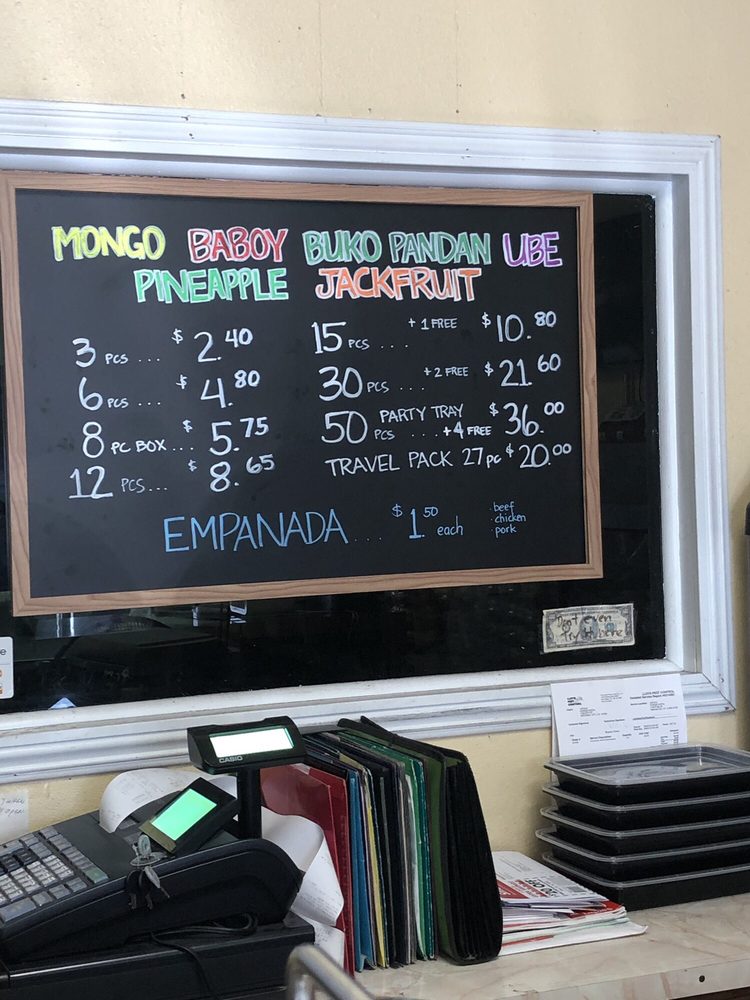 MONGO BABOY BUKO PANDAN UBE
PINEAPPLE JACKFRUIT
3 PCS ... $2.40
6 PCS ... $4.80
8 PC BOX ... $5.75
12 PCS... $8.65
15 PCS ... + 1 FREE $10.80
30 PCS ... + 2 FREE $21.60
50 PCS PARTY TRAY ... + 4 FREE $36.00
TRAVEL PACK 27 pc $20.00
EMPANADA... $1.50 each
· beef
· chicken
· pork
Don't Even
Try it here
CASIO